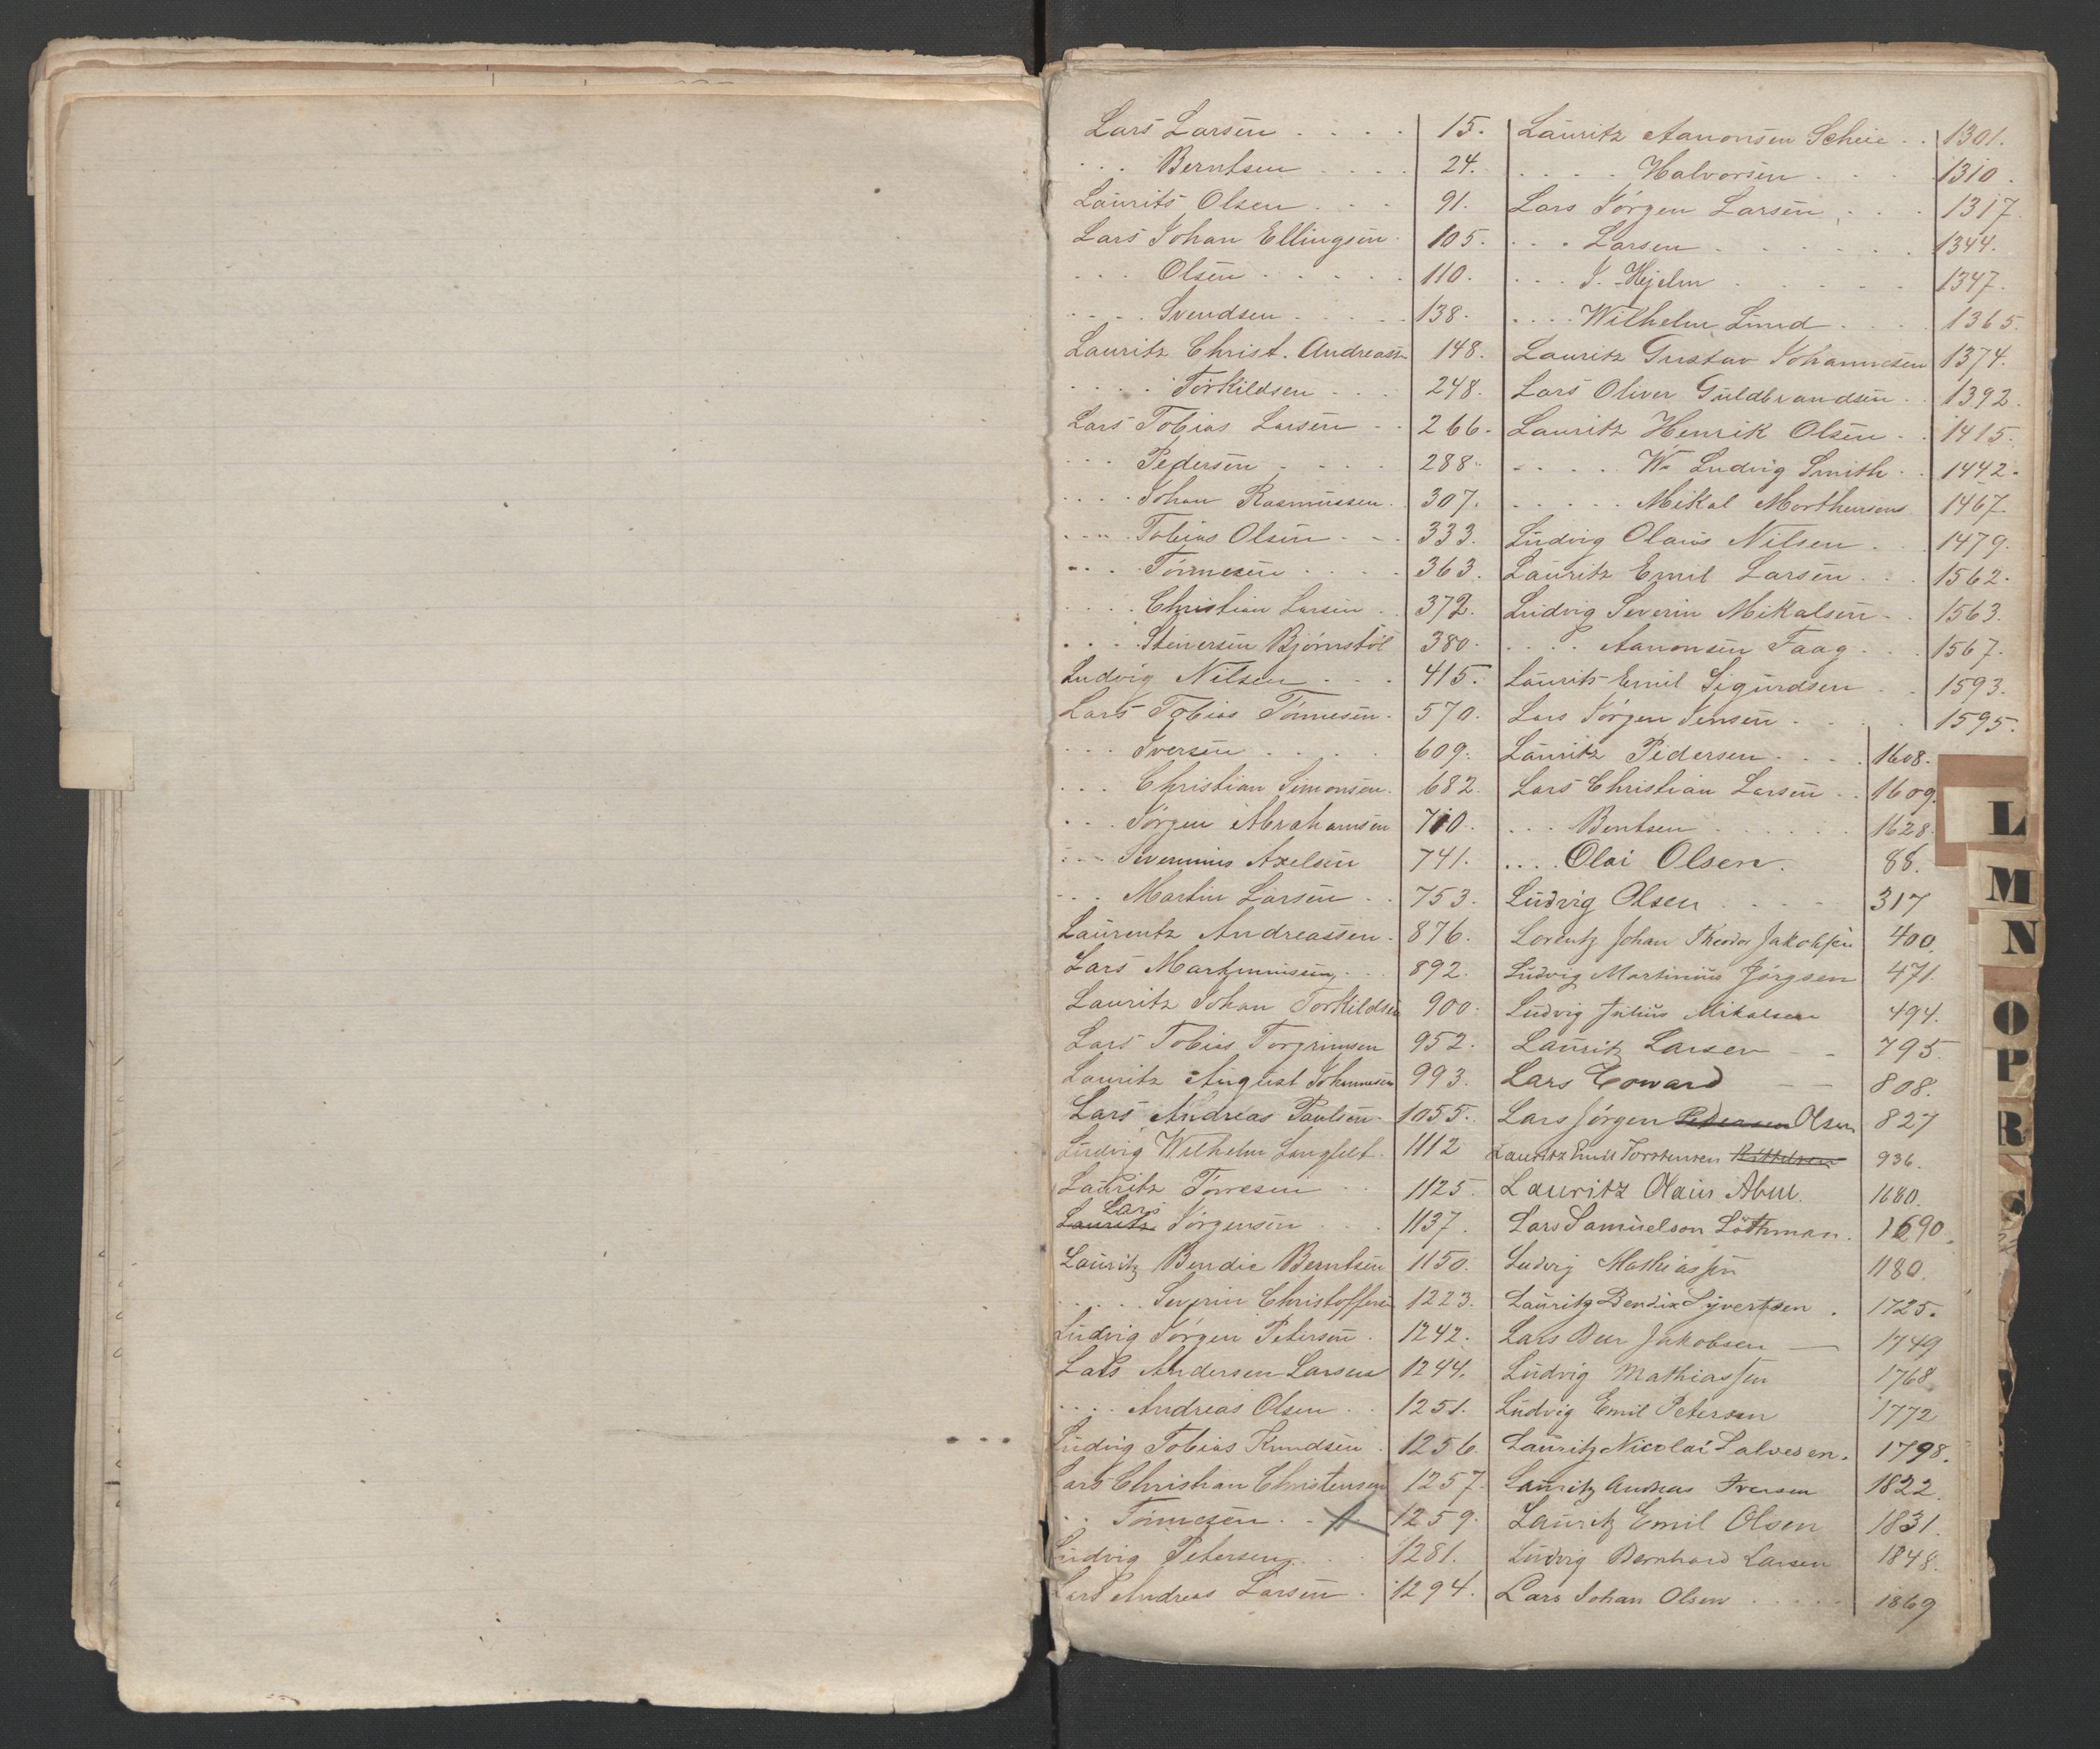 Lars Larsen . . . . 15.
. . . Berntsen . . . . 24.
Laurits Olsen . . . 91.
Lars Johan Ellingsen . 105.
. . . Olsen . . . . . 110.
. . . . Svendsen . . . . . 138.
Lauritz Christ. Andreassen 148.
. . . . . Torkildsen . . . 248.
Lars Tobias Larsen . . 266.
. . . Pedersen . . . . 288.
. . . . Johan Rasmussen . 307.
. . . . Tobias Olsen . . . 333.
. . . . Tønnesen . . . . 363.
. . . . Christian Larsen . . 372.
. . . . Steinersen Bjørnstøl 380.
Ludvig Nilsen . . . 415.
Lars Tobias Tønnesen . 570.
. . . Iversen . . . . 609.
. . . Christian Simonsen . 682.
. . . Jørgen Abrahamsen 710.
. . . Severinius Axelsen 741.
. . . Martin Larsen . . 753.
Laurentz Andreassen . 876.
Lars Martiniusen . . . 892.
Lauritz Johan Torkildsen 900.
Lars Tobias Torgrimsen 952.
Lauritz August Johannesen 993.
Lars Andreas Paulsen . 1055.
Ludvig Wilhelm Langfelt . 1112
Lauritz Tørresen . . 1125.
Lars
Lauritz Jørgensen . . . 1137.
Lauritz Bendix Berntsen 1150.
. . . . . Severin Christoffersen 1223.
Ludvig Jørgen Petersen . 1242.
Lars Andersen Larsen 1244.
. . . . Andreas Olsen . . 1251.
Ludvig Tobias Knudsen . 1256.
Lars Christian Christensen 1257.
. . Tønnesen . . 1259.
Ludvig Petersen . . . 1281.
Lars Andreas Larsen . 1294.
Lauritz Aanonsen Scheie . . 1301.
. . . . . Halvorsen . . . . 1310.
Lars Jørgen Larsen . . . 1317.
. . . Larsen . . . . . . 1344.
. . . J. Hejelm . . . . . 1347.
. . . . Wilhelm Lund . . . . 1365.
Lauritz Gustav Johannesen 1374.
Lars Oliver Guldbrandsen . . 1392.
Lauritz Henrik Olsen . . 1415.
. . . . . Wm Ludvig Smith . . 1442.
. . . . . Mikal Morthensens 1467.
Ludvig Olaus Nilsen . . . 1479.
Lauritz Emil Larsen . . . 1562.
Ludvig Severin Mikalsen . . 1563.
. . . . Aanonsen Faag . . . 1567.
Laurits Emil Sigurdsen . . 1593.
Lars Jørgen Jensen . . . . 1595.
Lauritz Pedersen . . . . 1608.
Lars Christian Larsen . . 1609.
. . . Bentsen . . . . . . 1628.
. . . . Olai Olsen . 88.
Ludvig Olsen . . . . 317
Lorentz Johan Theodor Jakobsen 400.
Ludvig Martinius Jørgsen 471.
Ludvig Julius Mikalsen 494.
Lauritz Larsen – – 795.
Lars Edward – – 808.
Lars Jørgen Pedersen Olsen 827
Lauritz Emil Torstensen Kittelsen 936.
Lauritz Olaus Abul. 1680.
Lars Samuelson Löthman . 1690.
Ludvig Mathiassen 1180.
Lauritz Bendix Syvertsen . 1725.
Lars Beer Jakobsen — 1749
Ludvig Mathiassen 1768
Ludvig Emil Petersen 1772
Lauritz Nicolai Salvesen . 1798.
Lauritz Andreas Iversen 1822.
Lauritz Emil Olsen 1831.
Ludvig Bernhard Larsen 1848.
Lars Johan Olsen . . . . . 1869
L
M
N
O
P
R
S